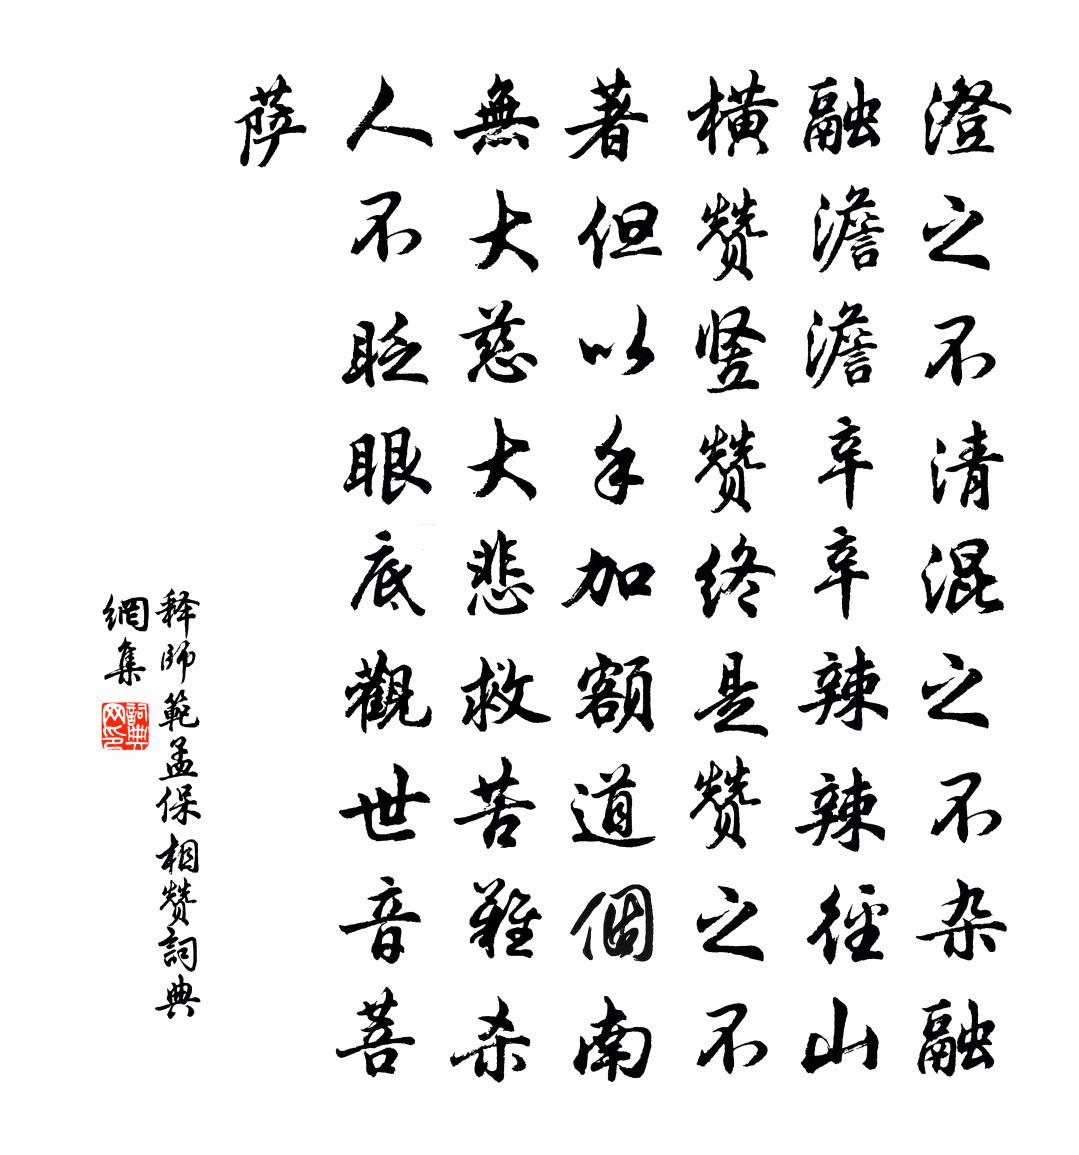 澄之不清混之不杂融
融澹澹辛辛辣辣径山
横赞竖赞终是赞之不
著但以手加额道個南
無大慈大悲救苦難杀
人不眨眼底觀世音菩
萨
释師範孟保相赞詞典
網集
詞典网印